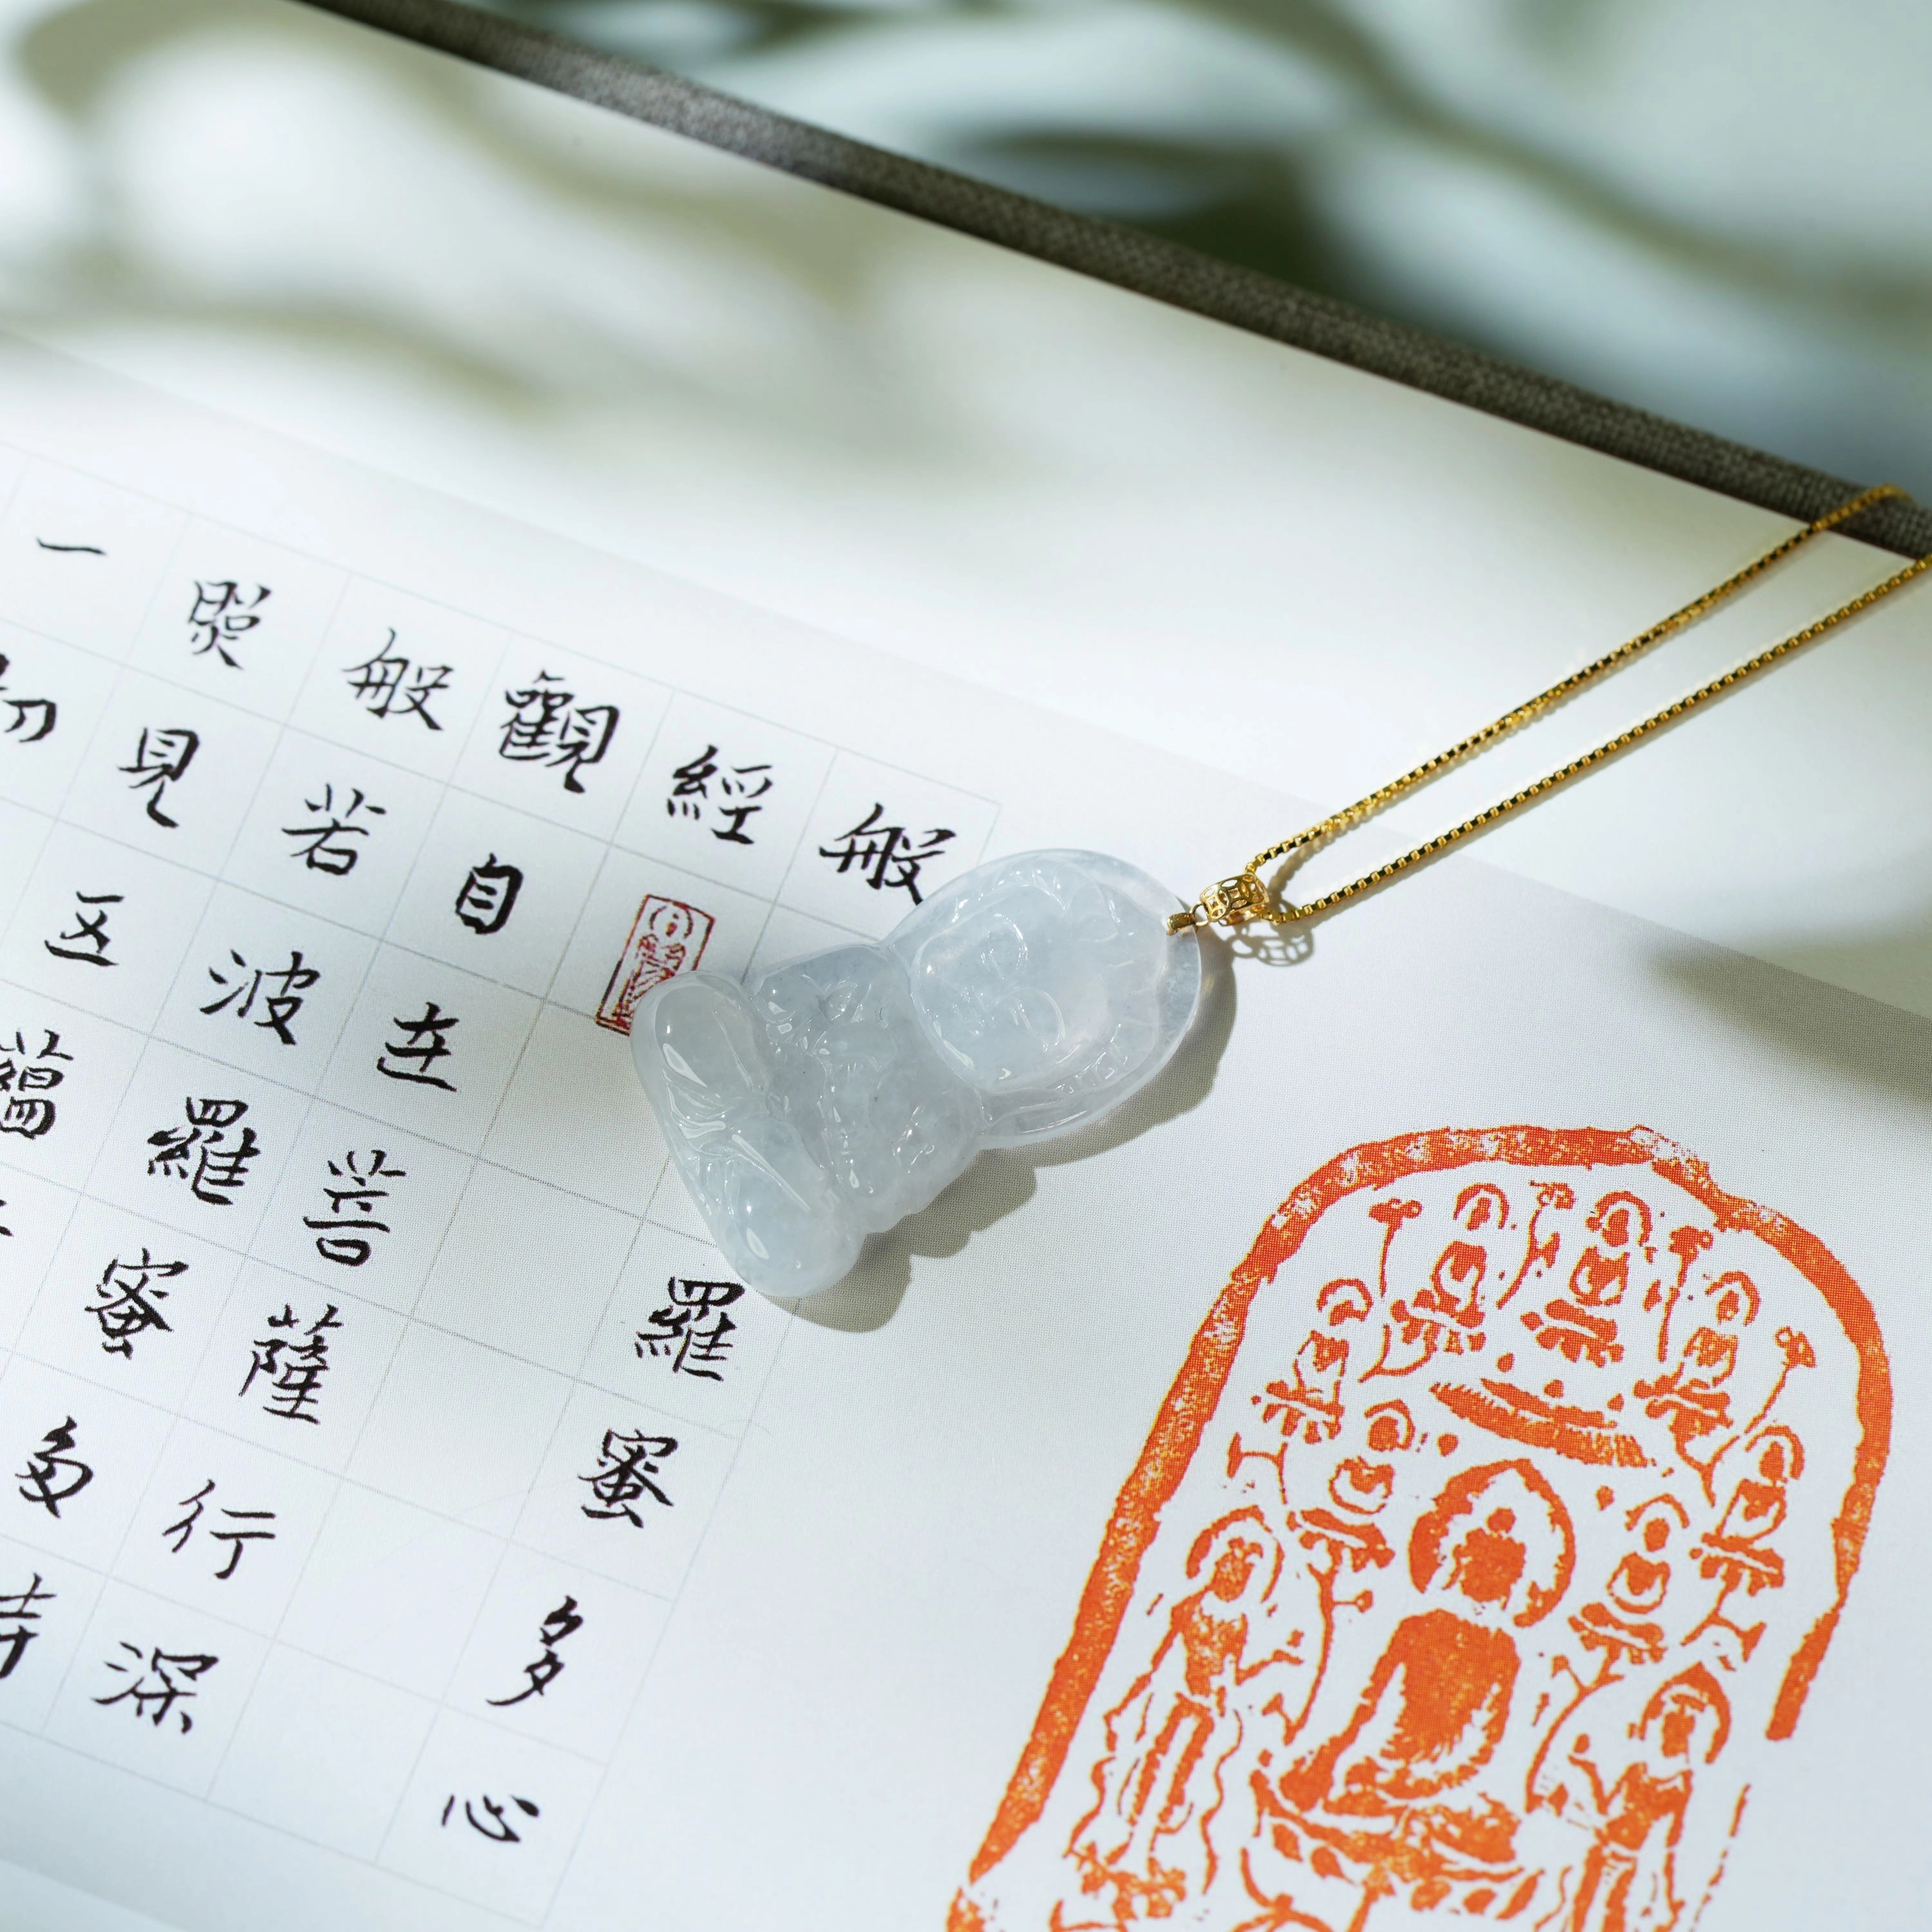 般羅蜜多心
經
觀自在菩薩行深
般若波羅蜜多時
照見五蘊
一切